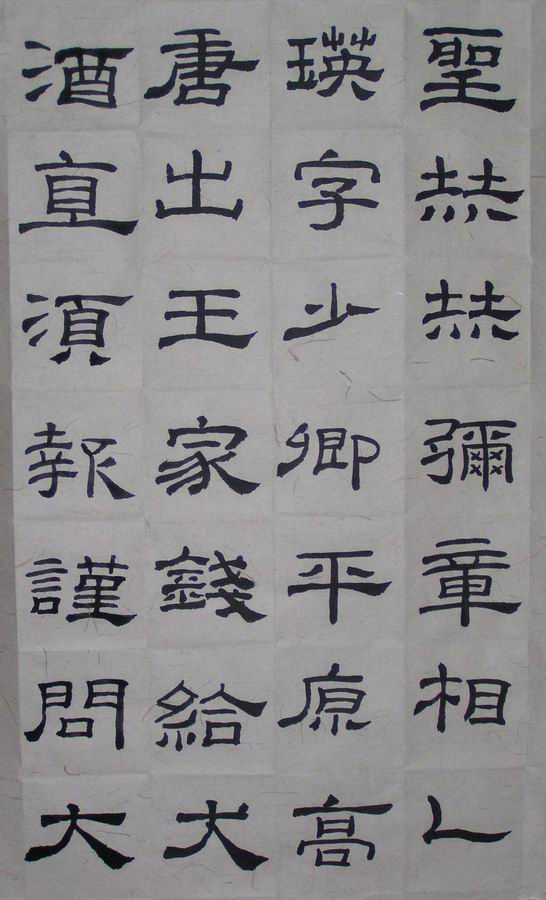 聖赫赫彌章相乙
瑛字少卿平原高
唐出王家錢給犬
酒直須報謹問大